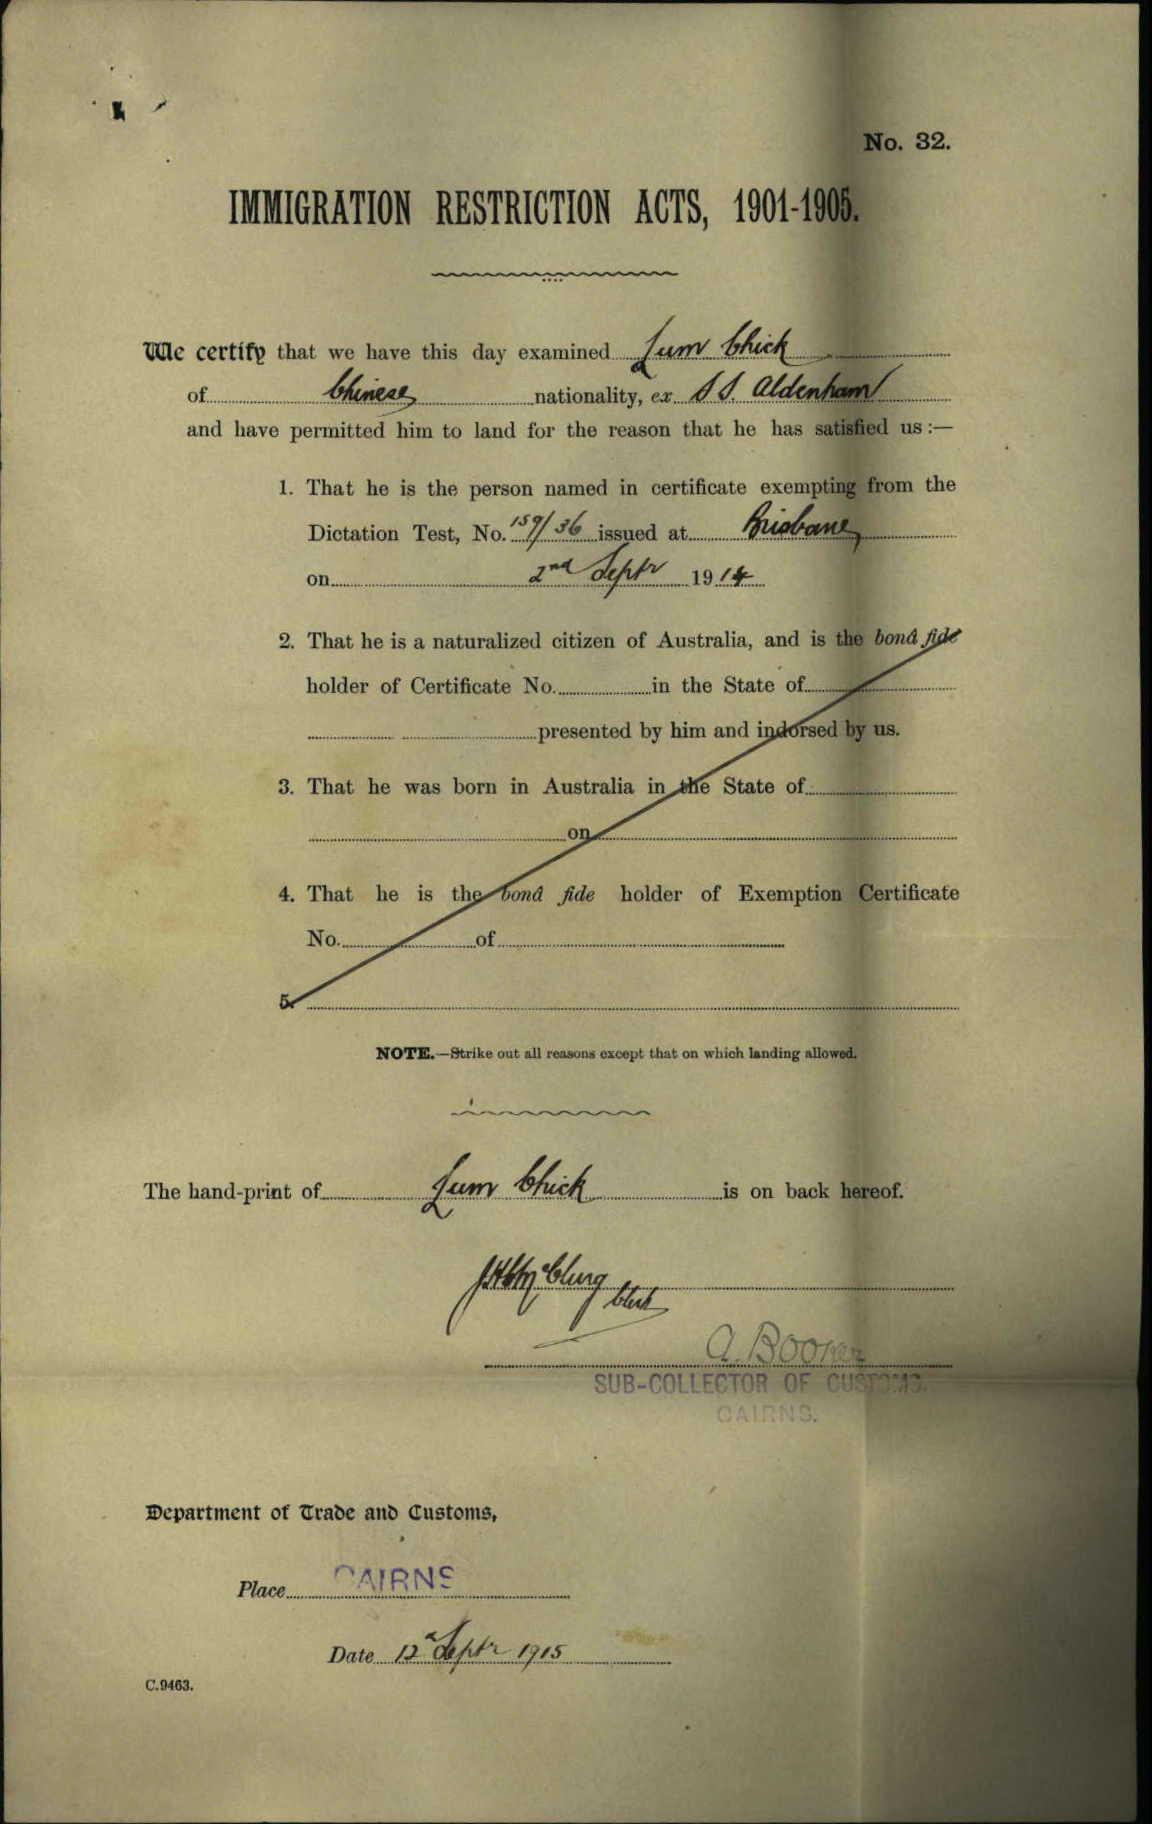 No. 32.
IMMIGRATION RESTRICTION ACTS, 1901-1905.
We certify that we have this day examined Lum Chick
of Chinese nationality, ex S S. Aldenham
and have permitted him to land for the reason that he has satisfied us :—
1. That he is the person named in certificate exempting from the
Dictation Test, No. 159/36 issued at Brisbane
on 2nd Septr 1914
2. That he is a naturalized citizen of Australia, and is the bonâ fide
holder of Certificate No. in the State of
presented by him and indorsed by us.
3. That he was born in Australia in the State of
on
4. That he is the bonâ fide holder of Exemption Certificate
No. of
5.
NOTE.—Strike out all reasons except that on which landing allowed.
The hand-print of Lum Chick is on back hereof.
McClurg
Clerk
A. Booker
SUB-COLLECTOR OF CUSTOMS.
CAIRNS.
Department of Trade and Customs,
Place CAIRNS
Date 12th Septr 1915
C.9463.